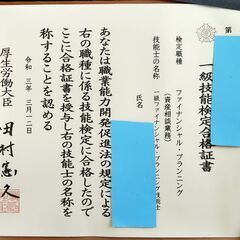 第
一級技能検定合格証書
検定職種
ファイナンシャル・プランニング
(資産相談業務)
技能士の名称
一級ファイナンシャル・プランニング技能士
氏名
あなたは職業能力開発促進法の規定による
右の職種に係る技能検定に合格したので
ここに合格証書を授与し右の技能士の名称を
称することを認める
令和三年三月一二日
厚生労働大臣
田村憲久